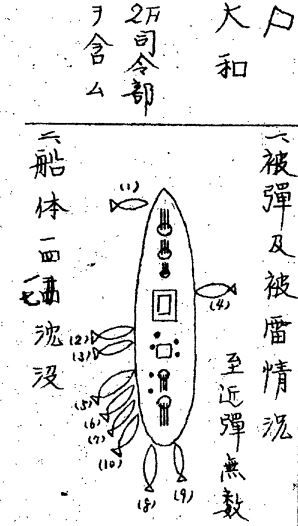 大和
2F司令部
ヲ含ム
一、被彈及被雷情況
至近彈無数
(1)
(4)
(2)
(3)
(5)
(6)
(7)
(10)
(8)
(9)
二、船体一四一七沈没